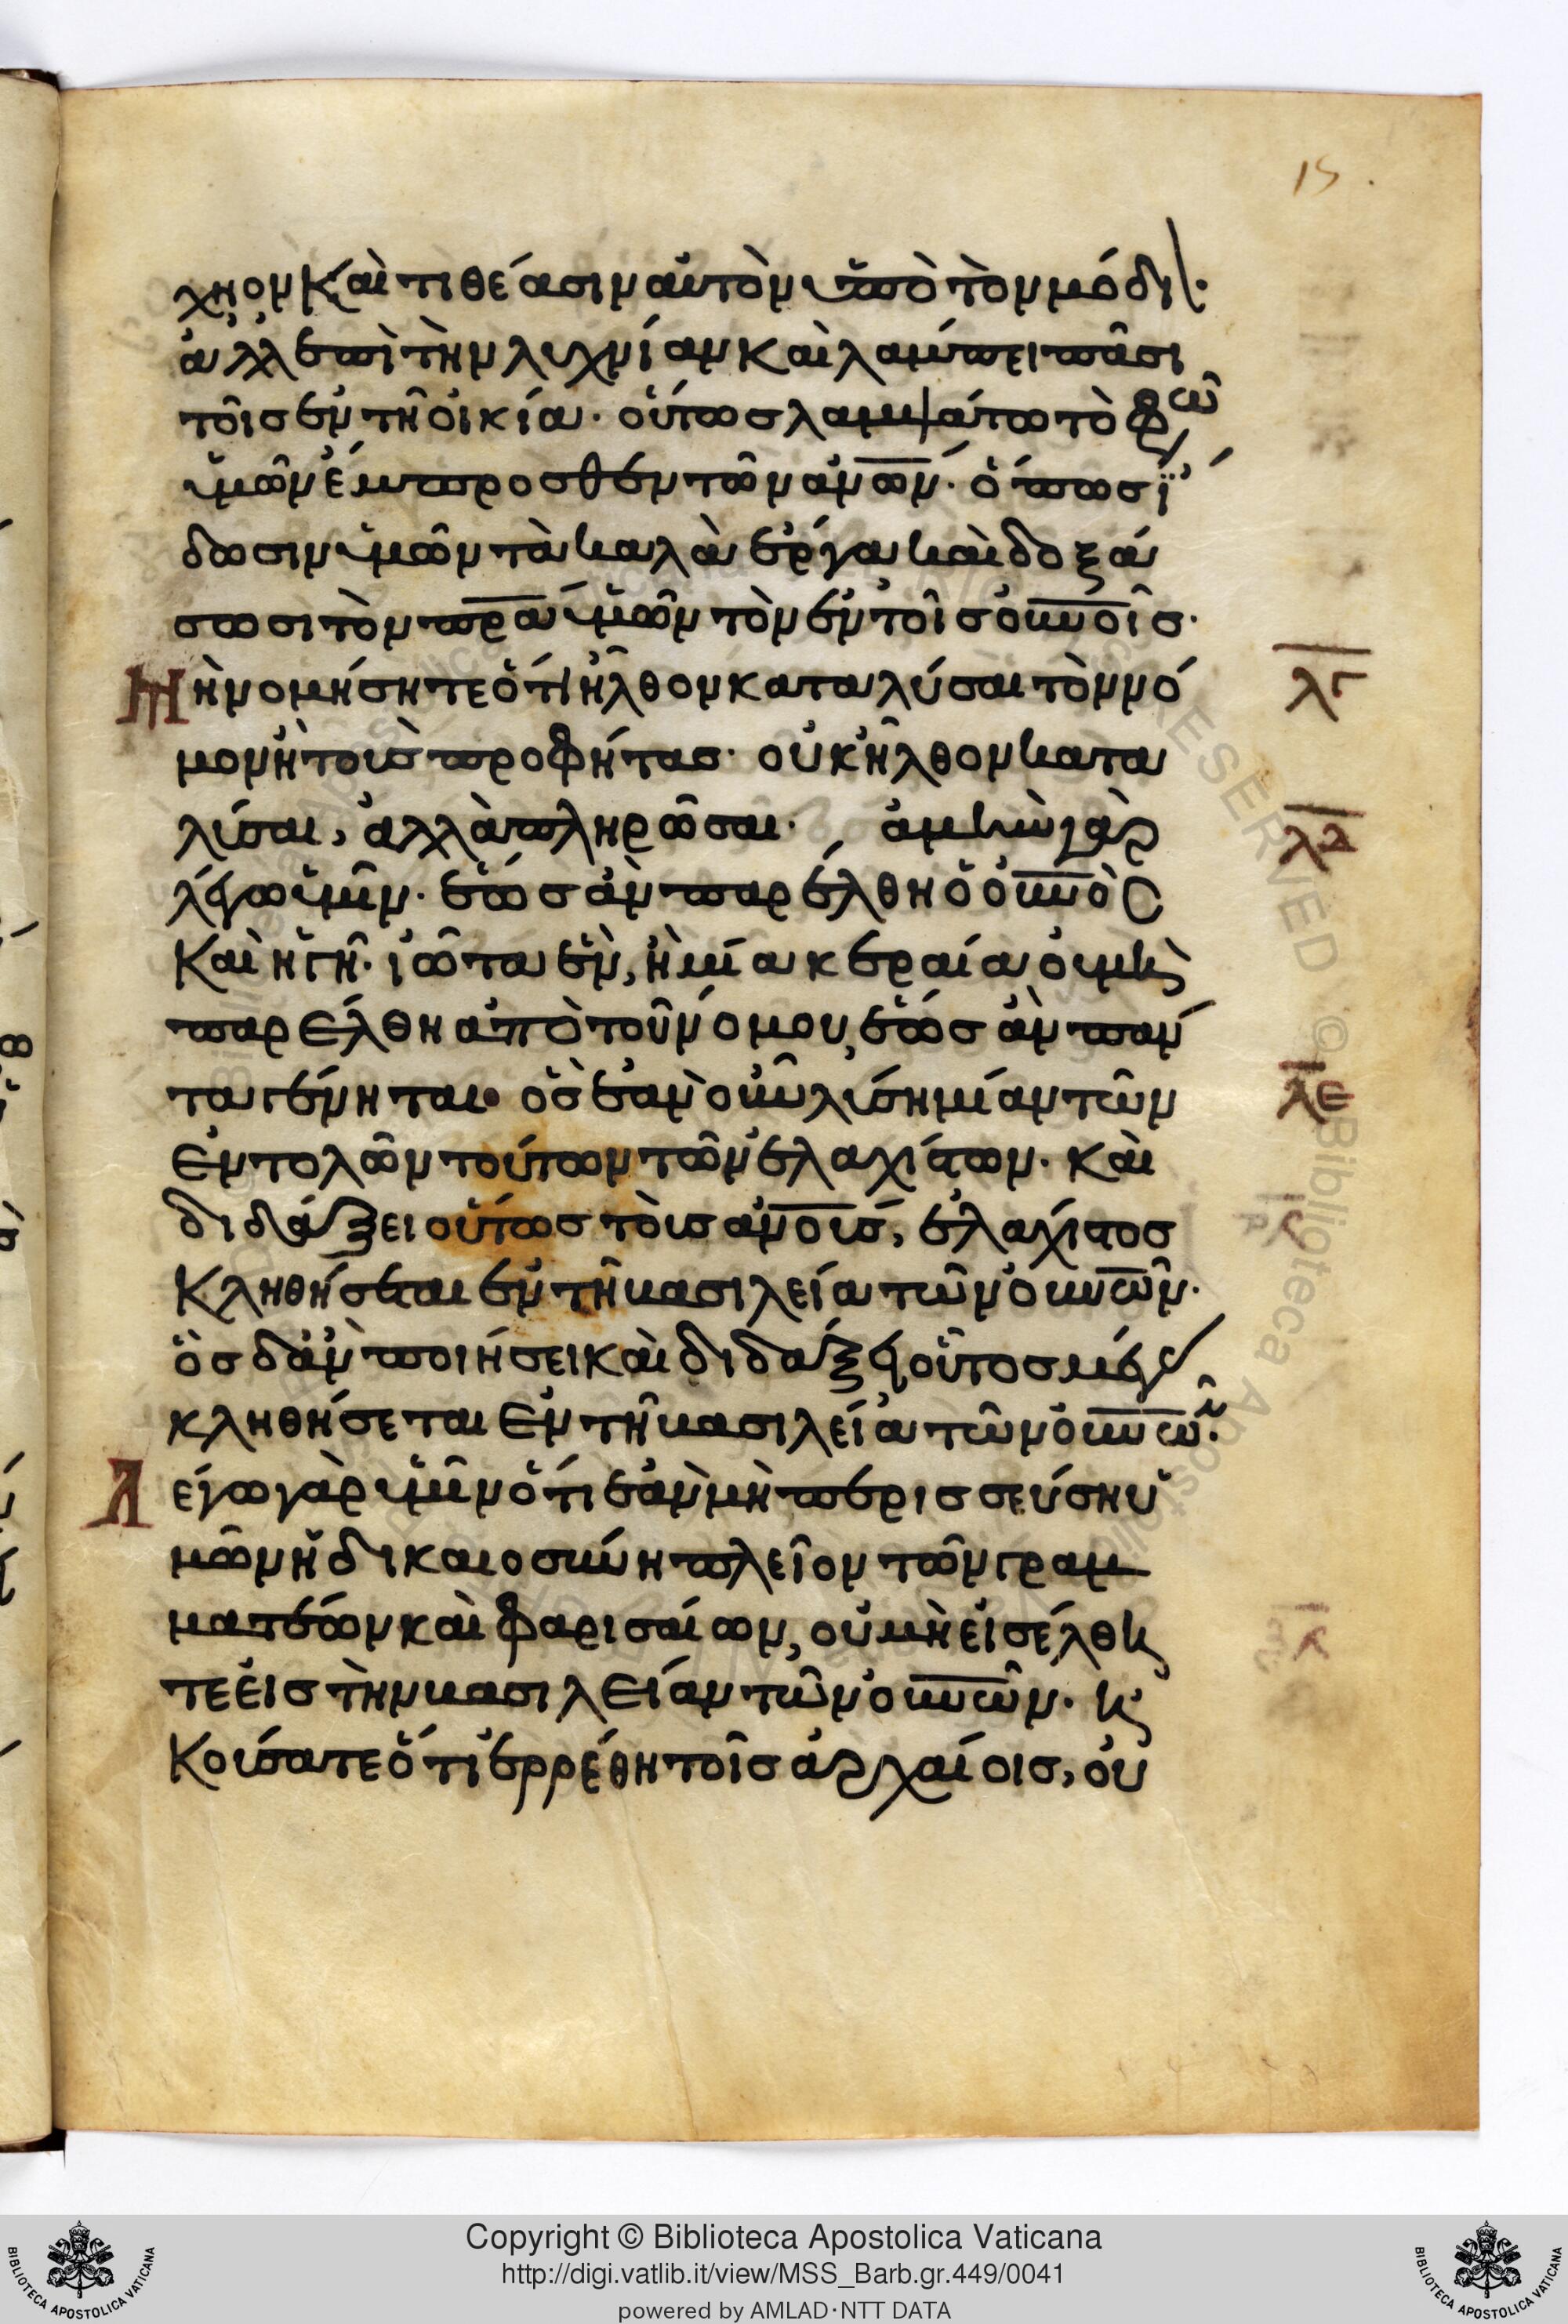 15.
χνον καὶ τιθέασιν αὐτὸν ὑπὸ τὸν μόδι\·
ἀλλ ἐπὶ τὴν λυχνίαν καὶ λάμπει πᾶσι
τοῖς ἐν τῆ οἰκία· οὕτως λαμψάτω τὸ φῶ
ὑμῶν ἔμπροσθεν τῶν ἀν̅ω̅ν· ὅπως ἴ
δωσιν ὑμῶν τὰ καλὰ ἔργα καὶ δοξά
σωσι τὸν π̅ρ̅α ὑμῶν τὸν ἐν τοῖς οὐ̅ν̅ο̅ῖς·
Μὴ νομήσητε ὅτι ἦλθον καταλύσαι τὸν νό
μον ἢ τοὺς προφήτας· οὐκ ἦλθον κατα
λύσαι, ἀλλὰ πληρῶσαι· ἀμὴν γὰρ
λέγω ὑμῖν· ἕως ἂν παρέλθη ὁ οὐ̅ν̅ὸς
καὶ ἡ γῆ· ἰῶτα ἓν, ἢ μία κεραία οὐ μὴ
παρέλθη ἀπὸ τοῦ νόμου, ἕως ἂν πάν
τα γένηται· ὃς ἐὰν οὖν λύση μίαν τῶν
ἐντολῶν τούτων τῶν ἐλαχίστων· καὶ
διδάξει οὕτως τοὺς ἀν̅ο̅υ̅ς, ἐλάχιστος
κληθήσεται ἐν τῆ βασιλεία τῶν οὐ̅ν̅ῶν·
ὃς δἂν ποιήσει καὶ διδάξει οὗτος μέγ
κληθήσεται ἐν τῆ βασιλεία τῶν οὐ̅ν̅ῶν·
Λέγω γὰρ ὑμῖν ὅτι ἐὰν μὴ περισσεύση ὑ
μῶν ἡ δικαιοσύνη πλεῖον τῶν γραμ
ματέων καὶ φαρισαίων, οὐ μὴ εἰσέλθη
τε εἰς τὴν βασιλείαν τῶν οὐ̅ν̅ῶν· ἠ
κούσατε ὅτι ἐρρέθη τοῖς ἀρχαίοις, οὐ
λγ
λδ
λε
Copyright © Biblioteca Apostolica Vaticana
http://digi.vatlib.it/view/MSS_Barb.gr.449/0041
powered by AMLAD·NTT DATA
BIBLIOTECA APOSTOLICA VATICANA
BIBLIOTECA APOSTOLICA VATICANA